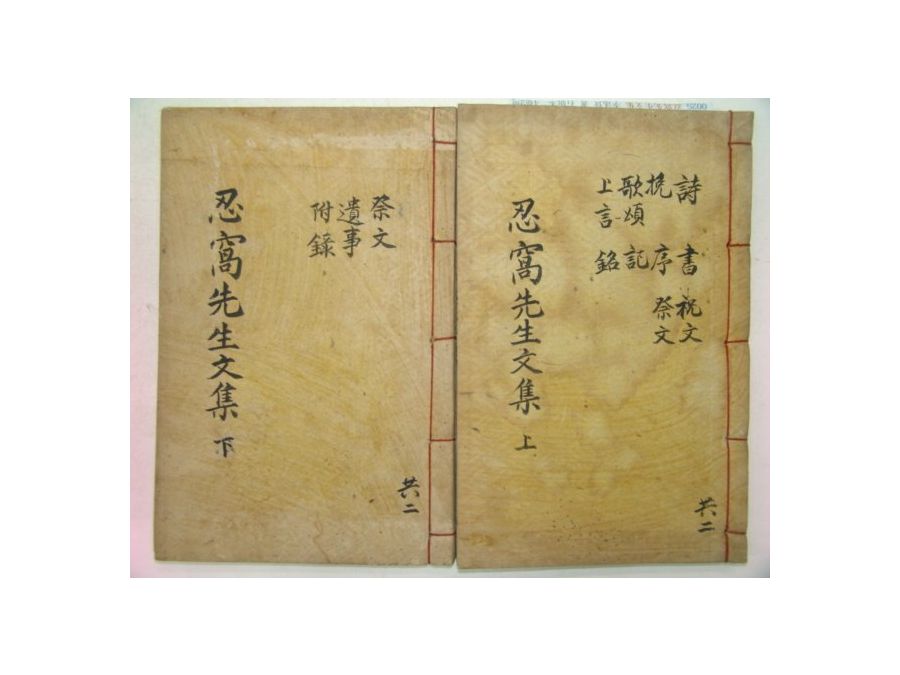 詩 書 祝文
挽 序 祭文
歌頌 記
上言 銘
忍窩先生文集 上
共二
祭文
遺事
附錄
忍窩先生文集 下
共二